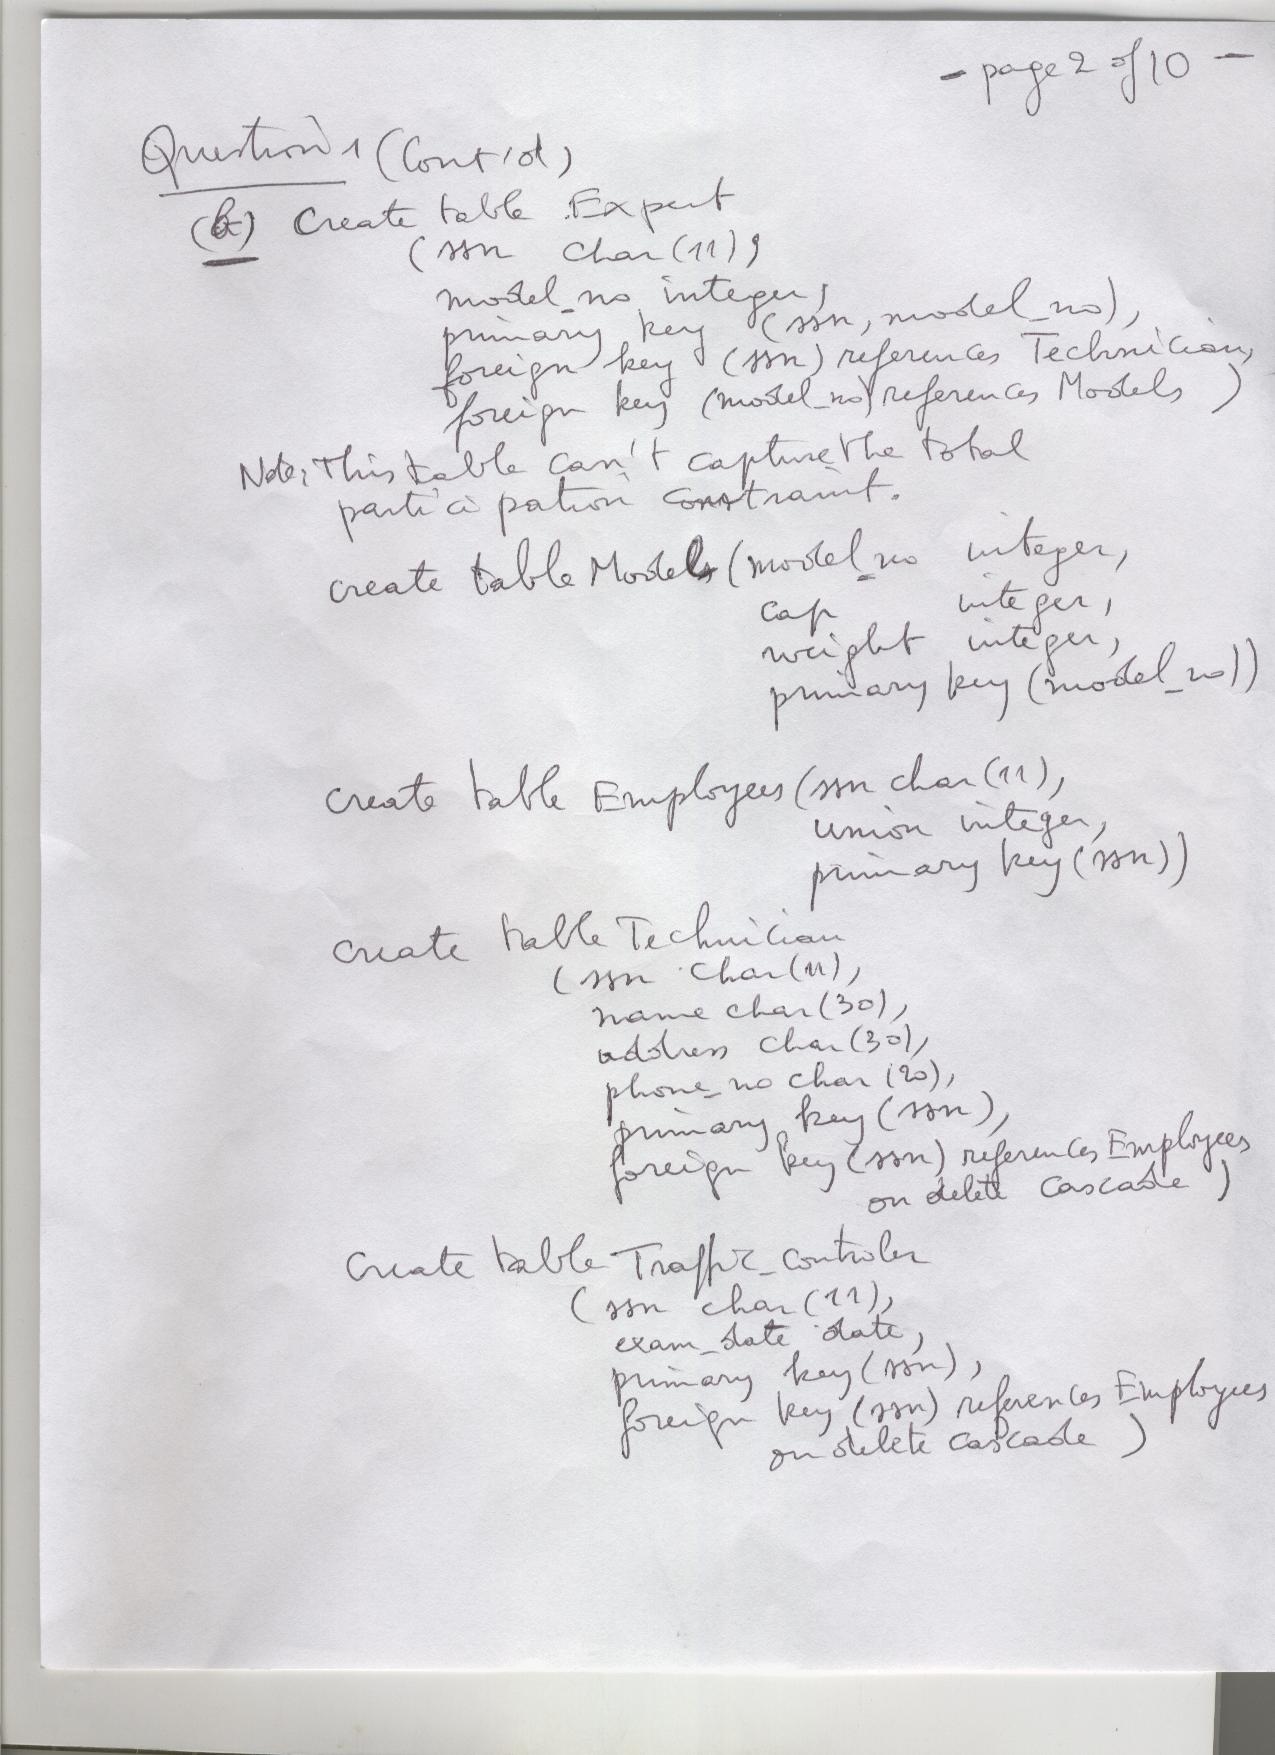 - page 2 of 10 -
Question 1 (Cont'd)
(b) Create table Expert
(ssn char(11),
model_no integer,
primary key (ssn, model_no),
foreign key (ssn) references Technician,
foreign key (model_no) references Models )
Note: This table can't capture the total
participation constraint.
create table Models (model_no integer,
cap integer,
weight integer,
primary key (model_no))
create table Employees (ssn char(11),
union integer,
primary key (ssn))
create table Technician
(ssn char(11),
name char(30),
address char(30),
phone_no char(20),
primary key (ssn),
foreign key (ssn) references Employees
on delete cascade )
Create table Traffic_controler
(ssn char(11),
exam_date date,
primary key (ssn),
foreign key (ssn) references Employees
on delete cascade )